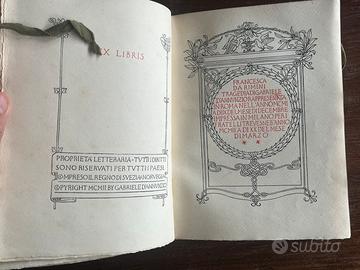 EX LIBRIS
PROPRIETÀ LETTERARIA · TUTTI I DIRITTI
SONO RISERVATI PER TUTTI I PAESI
COMPRESO IL REGNO DI SVEZIA · NORVEGIA
COPYRIGHT MCMII BY GABRIELE D'ANNVNZIO
FRANCESCA
DA RIMINI
TRAGEDIA DI GABRIELE
D'ANNVNZIO RAPPRESENTA
IN ROMA NELL'ANNO MCMI
A DI IX DEL MESE DI DECEMBRE
IMPRESSA IN MILANO PER I
FRATELLI TREVES NELL'ANNO
MCMII A DI XX DEL MESE
DI MARZO
subito